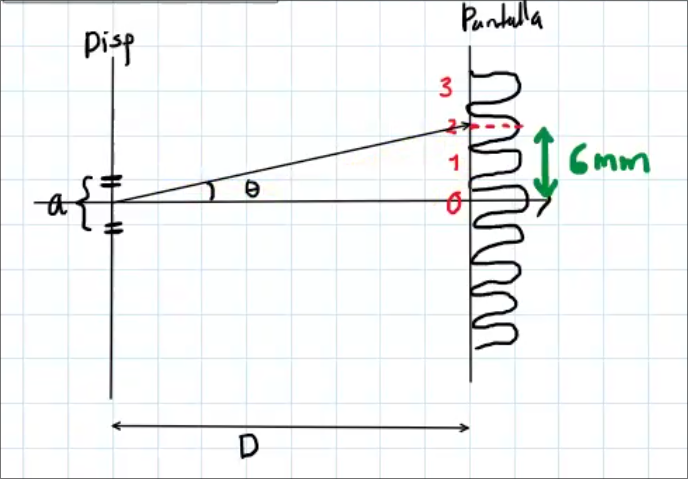 Disp
Pantalla
3
2
1
0
a
θ
6mm
D